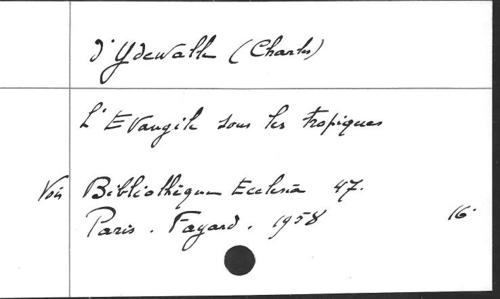 d'Ydewalle (Charles)
L'Evangile sous les tropiques
Voir Bibliothèque Ecclesia 47.
Paris. Fayard. 1958 16°